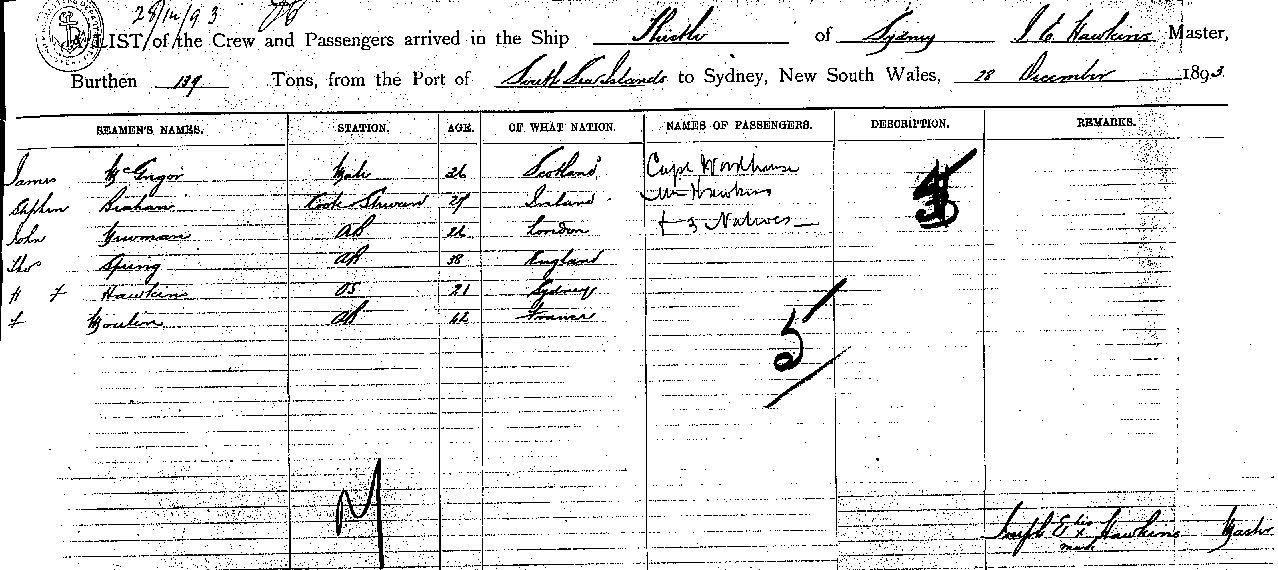 28/12/93
A LIST of the Crew and Passengers arrived in the Ship Thistle of Sydney J E Hawkins Master,
Burthen 139 Tons, from the Port of South Sea Islands to Sydney, New South Wales, 28 December 1893
SEAMEN'S NAMES. STATION. AGE. OF WHAT NATION. NAMES OF PASSENGERS. DESCRIPTION. REMARKS.
James McGregor Mate 26 Scotland Capt Woodhouse
Stephen Cook Steward 29 Ireland Mr Hawkins
John Newman AB 26 London + 3 Natives
Thos Spring AB 38 England
H F Hawkins OS 21 Sydney
F Moulin AB 42 France
5
Joseph E his x mark Hawkins Master